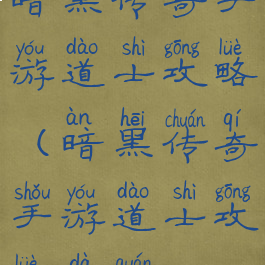 暗黑传奇手
yóu dào shì gōng lüè
游道士攻略
àn hēi chuán qí
(暗黑传奇
shǒu yóu dào shì gōng
手游道士攻
lüè dà quán